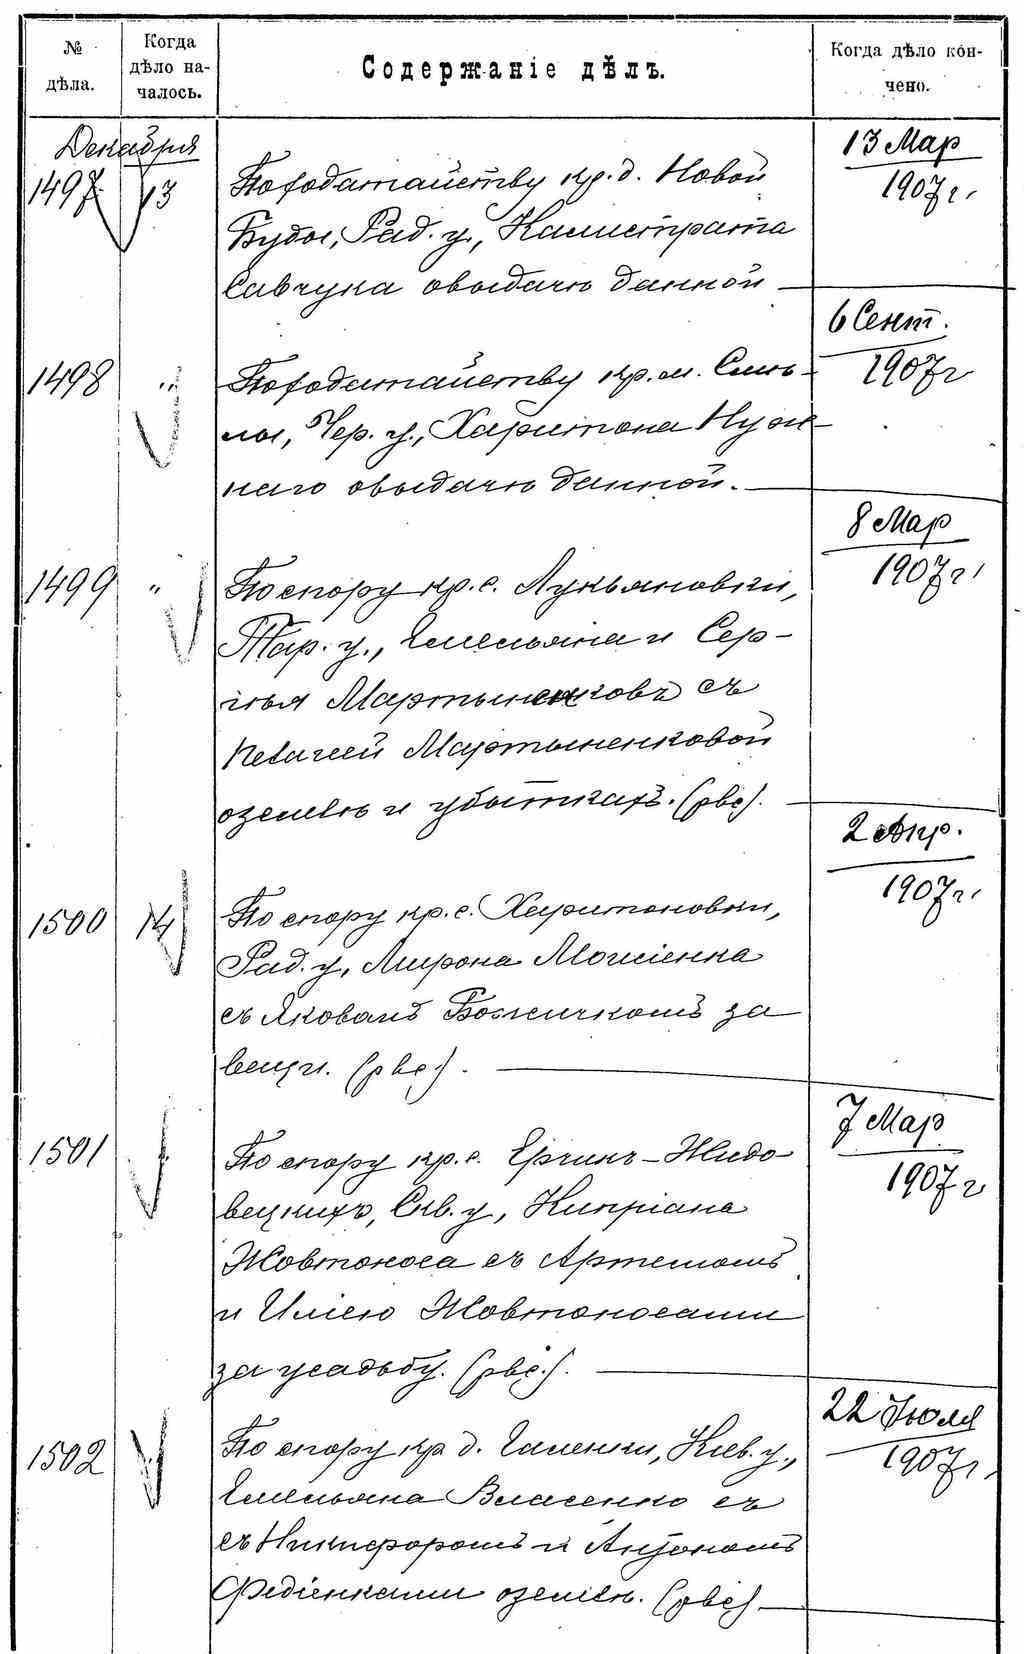 № дѣла.
Когда дѣло на-
чалось.
Содержаніе дѣлъ.
Когда дѣло кон-
чено.
Декабря
1497 13
По ходатайству кр. д. Новой
Буды, Рад. у., Калистрата
Савчука о выдачѣ данной
13 Мар
1907 г.
1498 "
По ходатайству кр. м. Смѣ-
лы, Чер. у., Харитона Нуж-
наго о выдачѣ данной.
6 Сент.
1907 г
1499 "
По спору кр. с. Лукьяновки,
Тар. у., Емельяна и Сер-
гѣя Мартыненковъ съ
Пелагіей Мартыненковой
о землѣ и убыткахъ. (рвс).
8 Мар
1907 г.
1500 14
По спору кр. с. Харитоновки,
Рад. у., Мирона Мосіенка
съ Яковомъ Божичкомъ за
вещи. (рвс).
2 Апр.
1907 г.
1501
По спору кр. с. Ерчикъ-Жидо-
вецкихъ, Скв. у., Кипріана
Жовтоноса съ Артемомъ
и Иліею Жовтоносами
за усадьбу. (рвс.).
7 Мар
1907 г
1502
По спору кр д. Галенки, Кіев. у.,
Емельяна Власенко съ
съ Никифоромъ и Антономъ
Федіенками о землѣ. (рвс)
22 Іюля
1907 г.